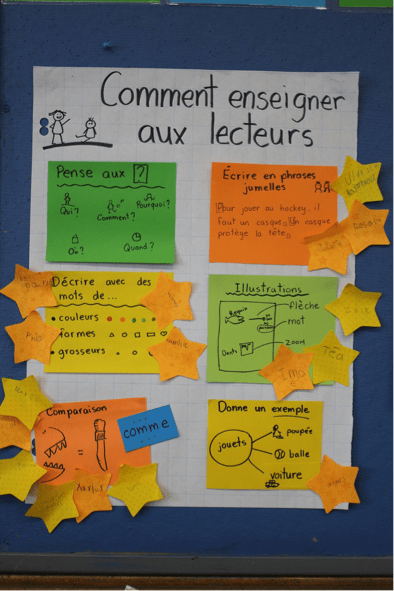 Comment enseigner
aux lecteurs
Pense aux ?
Qui?
Comment?
Pourquoi?
Où?
Quand?
Écrire en phrases
jumelles
Pour jouer au hockey, il
faut un casque. Un casque
protège la tête.
Décrire avec des
mots de...
• couleurs
• formes
• grosseurs
Illustrations
flèche
mot
zoom
Dents
Comparaison
=
comme
Donne un exemple
jouets
poupée
balle
voiture